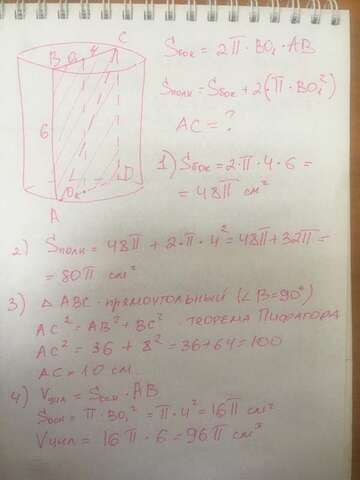 C
B O₁ 4
6
D
O₂
A
Sбок = 2π · BO₁ · AB
Sполн = Sбок + 2(π · BO₁²)
AC = ?
1) Sбок = 2·π·4·6 =
= 48π см²
2) Sполн = 48π + 2·π·4² = 48π + 32π =
= 80π см²
3) △ ABC - прямоугольный (∠B = 90°)
AC² = AB² + BC² теорема Пифагора
AC² = 36 + 8² = 36+64 = 100
AC = 10 см
4) Vцил = Sосн · AB
Sосн = π · BO₁² = π · 4² = 16π см²
Vцил = 16π · 6 = 96π см³